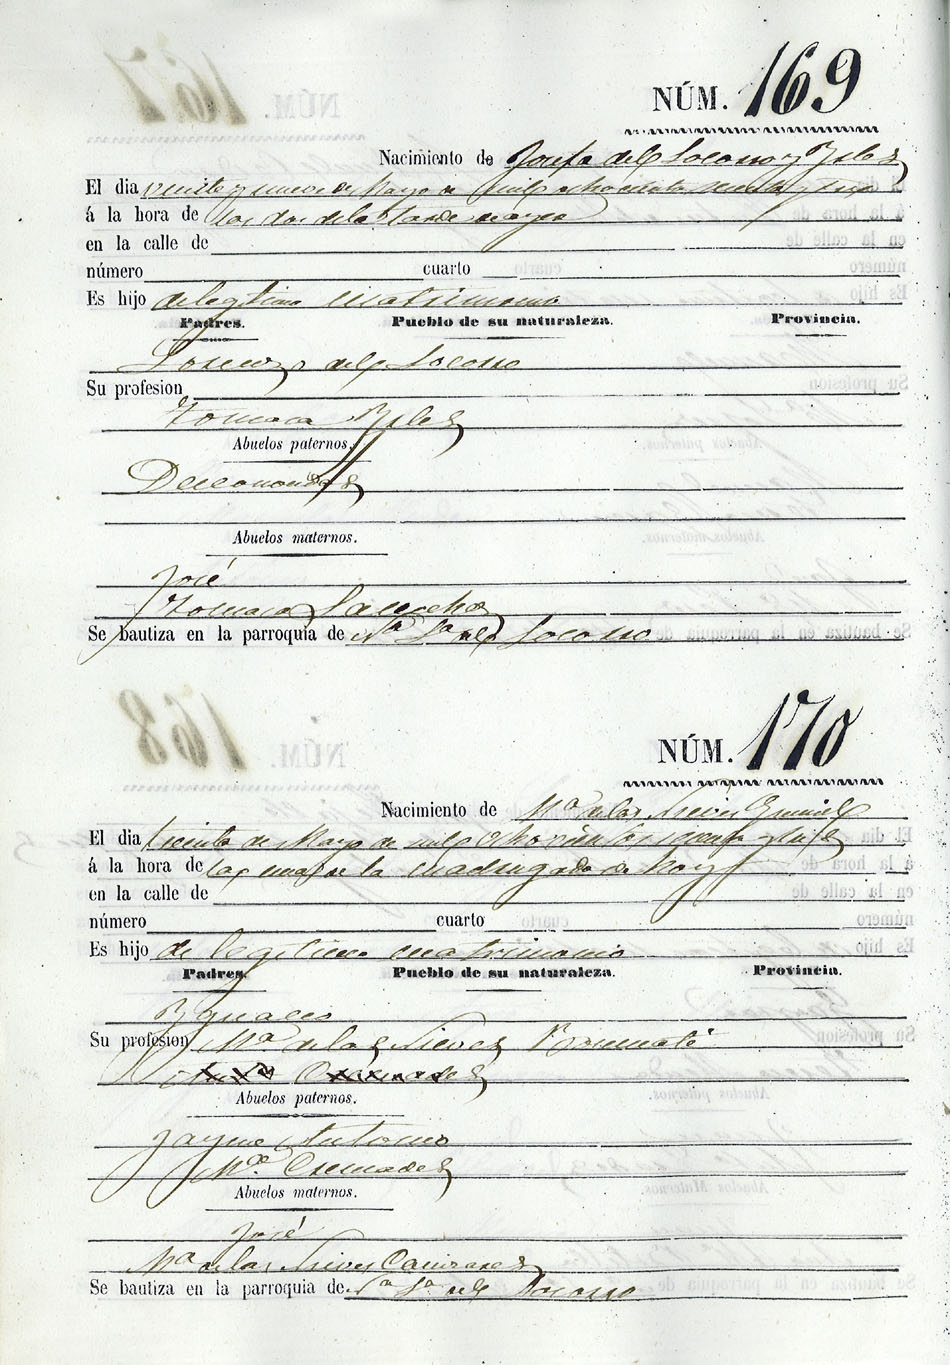 NÚM. 169
Nacimiento de Josefa del Socorro y Isles
El dia veinte y nueve de Mayo de mil ochocientos sesenta y
á la hora de las dos de la tarde
en la calle de
número cuarto
Es hijo de legitimo matrimonio
Padres. Pueblo de su naturaleza. Provincia.
Lorenzo del Socorro
Su profesion
Tomasa Isles
Abuelos paternos.
Desconocidos
Abuelos maternos.
José
Tomasa Sanchez
Se bautiza en la parroquia de Nª Sª del Socorro
NÚM. 170
Nacimiento de Mª de las Nieves
El dia treinta de Mayo de mil ochocientos
á la hora de las una de la madrugada de hoy
en la calle de
número cuarto
Es hijo de legitimo matrimonio
Padres. Pueblo de su naturaleza. Provincia.
Ygnacio
Su profesion Mª de las Nieves
Abuelos paternos.
Jayme Antonio
Mª Cremades
Abuelos maternos.
José
Mª de las Nieves
Se bautiza en la parroquia de Sª del Socorro